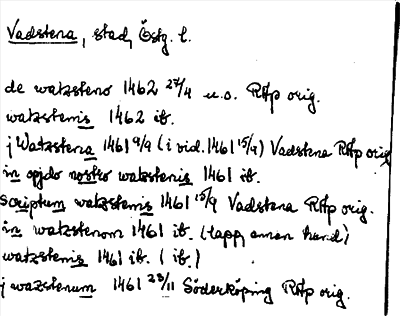 Vadstena, stad, Östg. l.
de watzsteno 1462 27/4 u.o. RAp orig.
watzstenis 1462 ib.
j Watzstena 1461 9/9 (i vid. 1461 15/9) Vadstena RAp orig
in opido nostro watzstenis 1461 ib.
scriptum watzstenis 1461 15/9 Vadstena RAp orig.
in watzstenom 1461 ib. (lapp, annan hand)
watzstenis 1461 ib. (ib.)
j wazstenum 1461 23/11 Söderköping RAp orig.